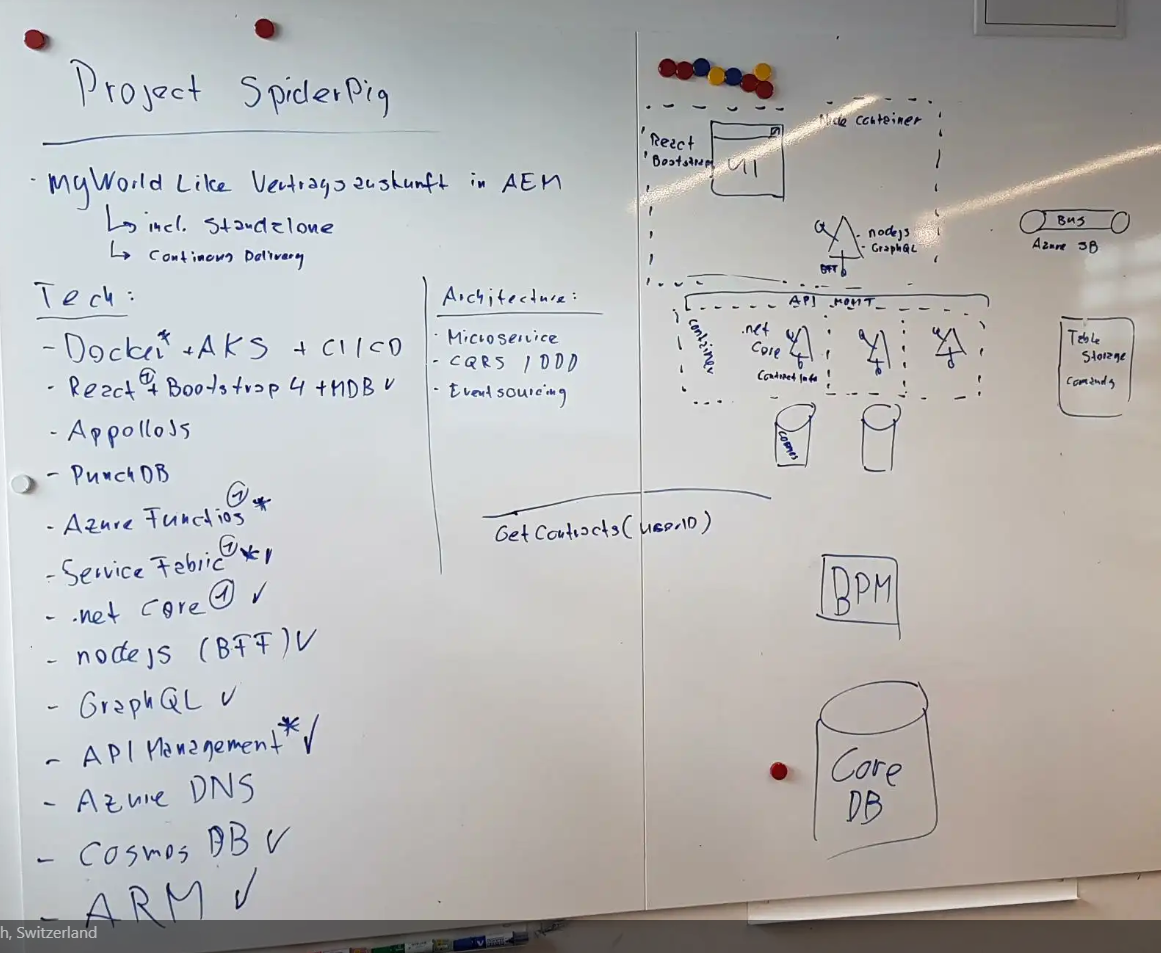 Project SpiderPig
· myWorld Like Vertragszuskunft in AEM
↳ incl. Standalone
↳ Continous Delivery
Tech:
- Docker* + AKS + CI/CD
- React① + Bootstrap 4 + MDB ✓
- AppolloJS
- PunchDB
- Azure Functios① *
- Service Fabric① * ✓
- .net Core① ✓
- nodejs (BFF) ✓
- GraphQL ✓
- API Management* ✓
- Azure DNS
- Cosmos DB ✓
- ARM ✓
Architecture:
· Microservice
- CQRS / DDD
· Eventsourcing
GetContracts(userID)
React
Bootstrap
UI
Node Container
nodejs
GraphQL
BFF
API MGMT
Container
.net
Core
Contract Info
Cosmos
BUS
Azure SB
Table
Storage
Comands
BPM
Core
DB
h, Switzerland